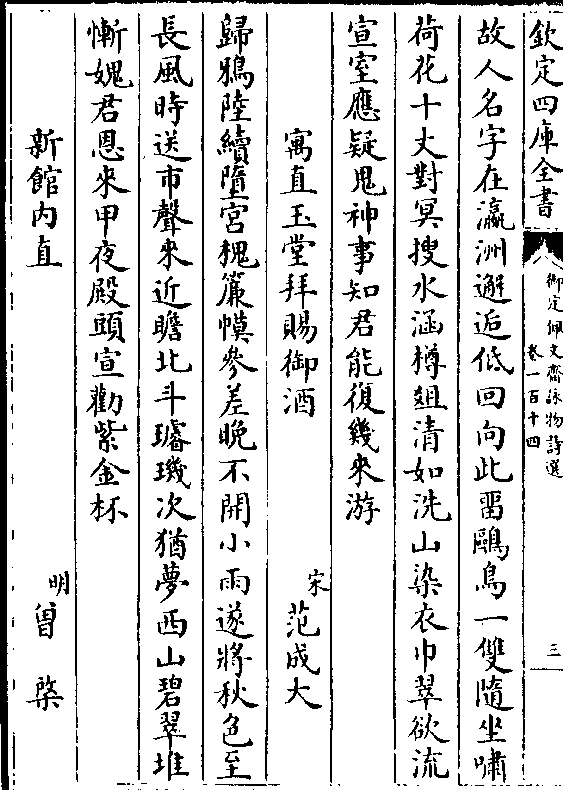 欽定四庫全書
御定佩文齋詠物詩選
卷一百十四
三
故人名字在瀛洲邂逅低回向此畱鷗鳥一雙隨坐嘯
荷花十丈對冥搜水涵樽俎清如洗山染衣巾翠欲流
宣室應疑鬼神事知君能復幾來游
寓直玉堂拜賜御酒
宋范成大
歸鴉陸續墮宮槐簾幙參差晚不開小雨遂將秋色至
長風時送市聲來近瞻北斗璿璣次猶夢西山碧翠堆
慚媿君恩來甲夜殿頭宣勸紫金杯
新館内直
明曾棨